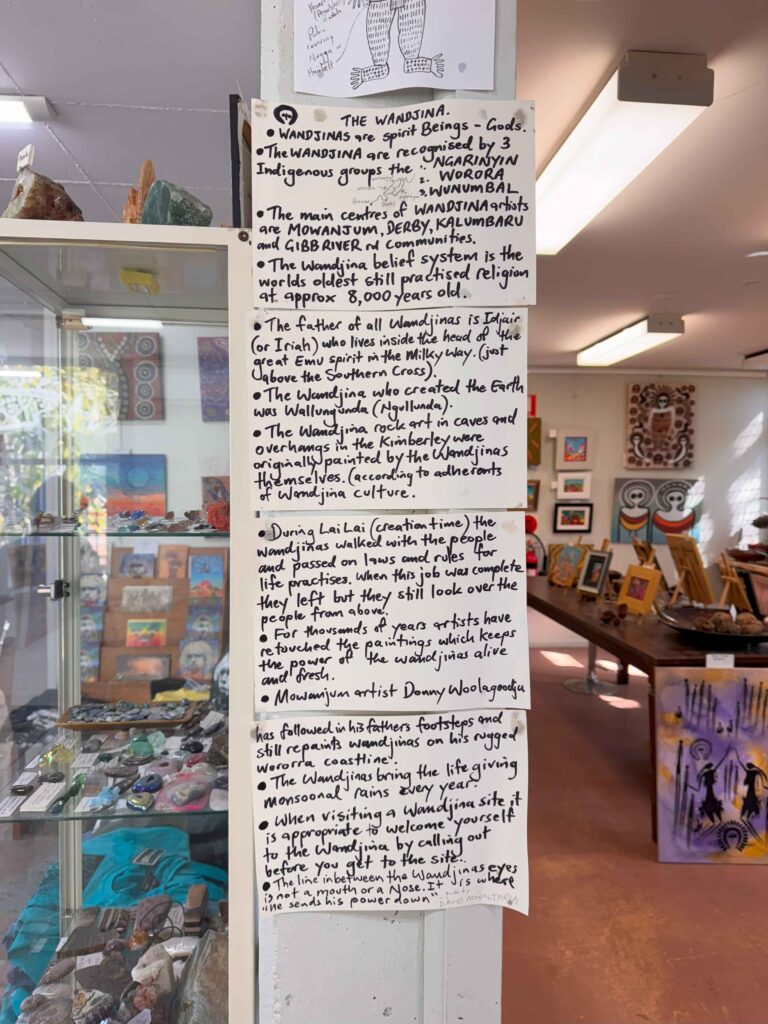 covering
THE WANDJINA.
• WANDJINAS are spirit Beings - Gods.
• The WANDJINA are recognised by 3
Indigenous groups the 1. NGARINYIN
2. WORORA
3. WUNUMBAL
• The main centres of WANDJINA artists
are MOWANJUM, DERBY, KALUMBARU
and GIBB RIVER rd communities.
• The Wandjina belief system is the
worlds oldest still practised religion
at approx 8,000 years old.
• The father of all Wandjinas is Idjair
(or Iriah) who lives inside the head of the
great Emu spirit in the Milky Way. (just
above the Southern Cross).
• The Wandjina who created the Earth
was Wallungunda (Ngullunda).
• The Wandjina rock art in caves and
overhangs in the Kimberley were
originally painted by the Wandjinas
themselves. (according to adherents
of Wandjina culture.
• During Lai Lai (creation time) the
wandjinas walked with the people
and passed on laws and rules for
life practises. When this job was complete
they left but they still look over the
people from above.
• For thousands of years artists have
retouched the paintings which keeps
the power of the wandjinas alive
and fresh.
• Mowanjum artist Donny Woolagoodja
has followed in his fathers footsteps and
still repaints wandjinas on his rugged
wororra coastline.
• The Wandjinas bring the life giving
monsoonal rains every year.
• When visiting a Wandjina site it
is appropriate to welcome yourself
to the Wandjina by calling out
before you get to the site.
• The line in between the Wandjinas eyes
is not a mouth or a Nose. It is where
"he sends his power down"
DAVID